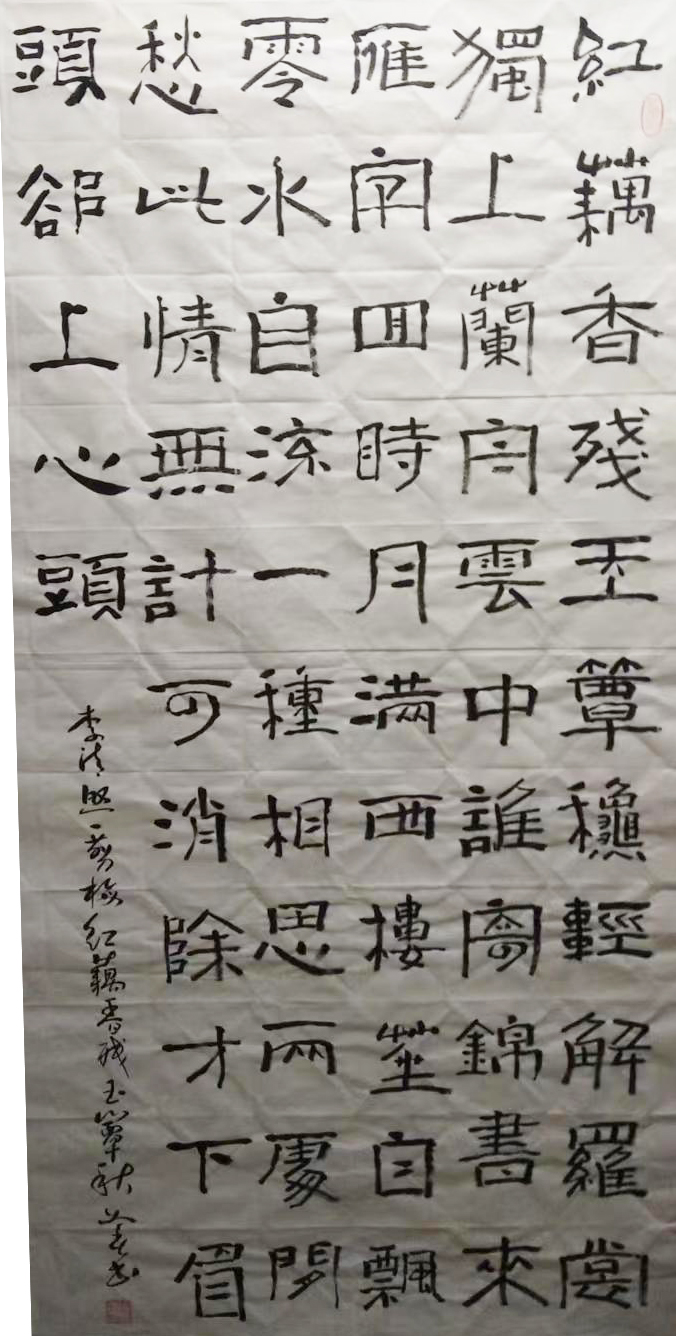 紅藕香殘玉簟穐輕解羅裳
獨上蘭舟雲中誰寄錦書來
雁字回時月滿西樓華自飄
零水自流一種相思兩處閒
愁此情無計可消除才下眉
頭卻上心頭
李清照一剪梅紅藕香殘玉簟秋